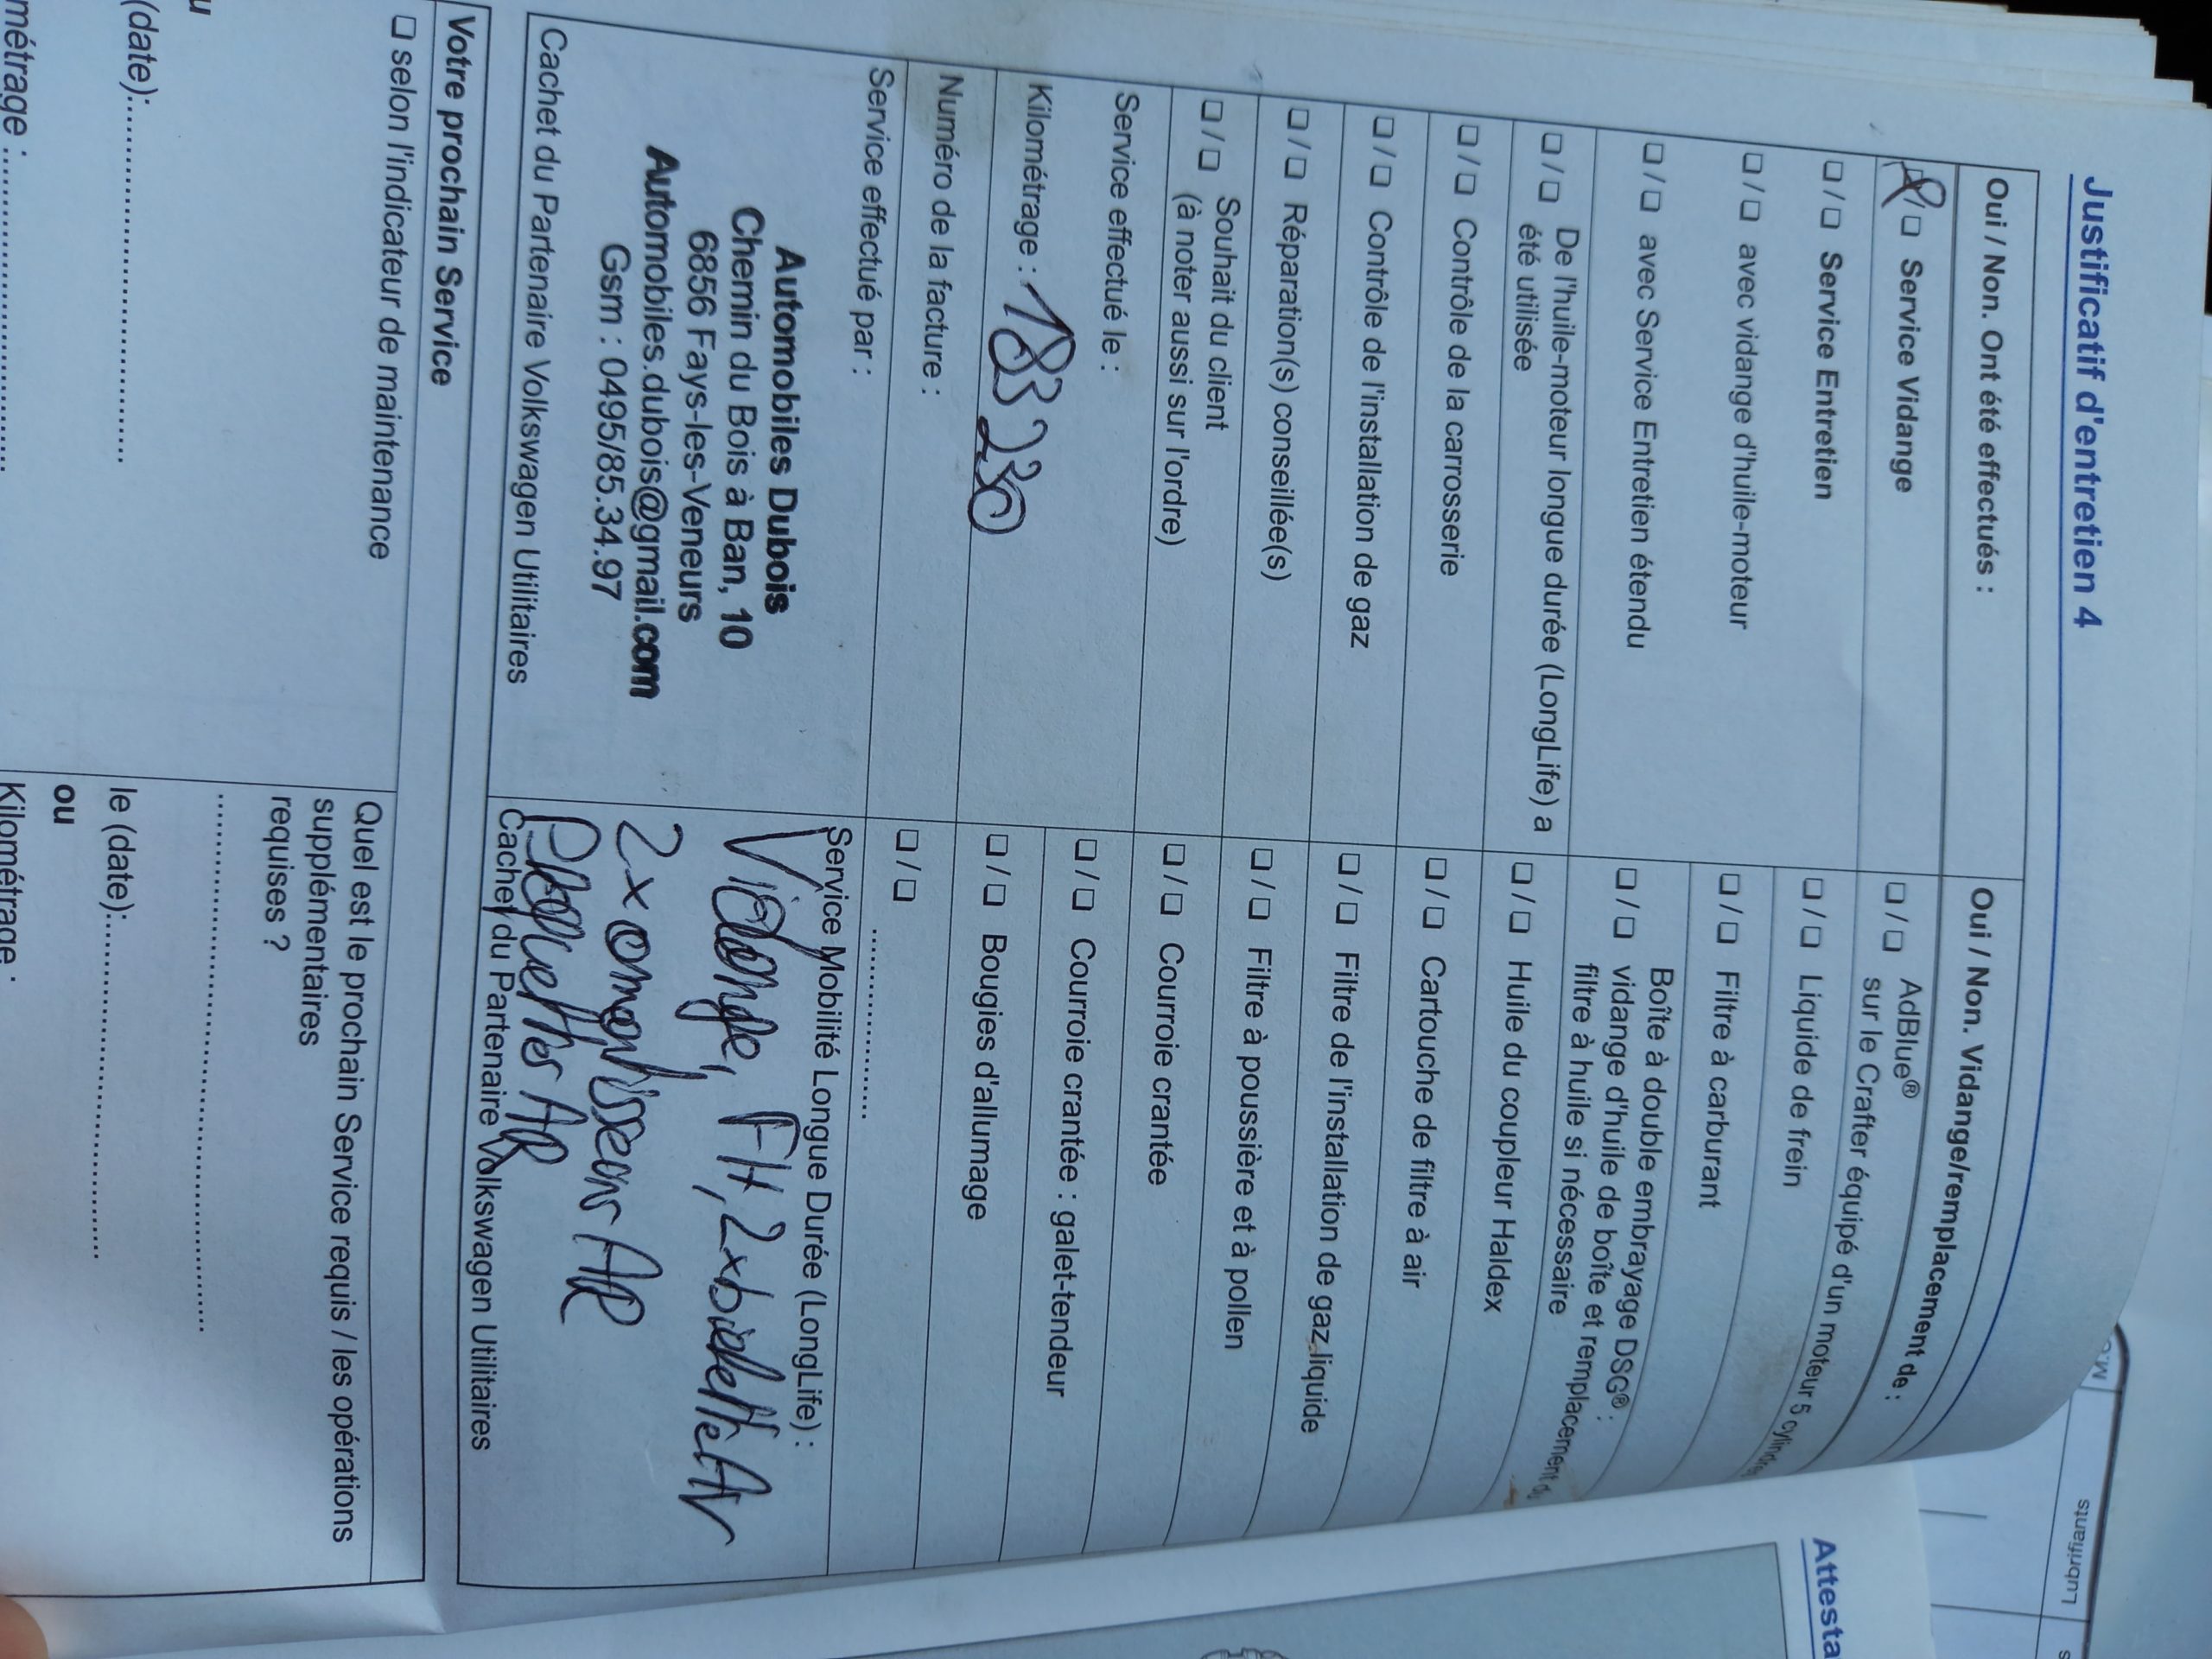 Justificatif d'entretien 4
Oui / Non. Ont été effectués :
❑/❑ Service Vidange
❑/❑ Service Entretien
❑/❑ avec vidange d'huile-moteur
❑/❑ avec Service Entretien étendu
❑/❑ De l'huile-moteur longue durée (LongLife) a
été utilisée
❑/❑ Contrôle de la carrosserie
❑/❑ Contrôle de l'installation de gaz
❑/❑ Réparation(s) conseillée(s)
❑/❑ Souhait du client
(à noter aussi sur l'ordre)
Service effectué le :
Kilométrage : 183 230
Numéro de la facture :
Service effectué par :
Automobiles Dubois
Chemin du Bois à Ban, 10
6856 Fays-les-Veneurs
Automobiles.dubois@gmail.com
Gsm : 0495/85.34.97
Cachet du Partenaire Volkswagen Utilitaires
Oui / Non. Vidange/remplacement de :
❑/❑ AdBlue®
sur le Crafter équipé d'un moteur 5 cylindres
❑/❑ Liquide de frein
❑/❑ Filtre à carburant
Boîte à double embrayage DSG® :
❑/❑ vidange d'huile de boîte et remplacement
filtre à huile si nécessaire
❑/❑ Huile du coupleur Haldex
❑/❑ Cartouche de filtre à air
❑/❑ Filtre de l'installation de gaz liquide
❑/❑ Filtre à poussière et à pollen
❑/❑ Courroie crantée
❑/❑ Courroie crantée : galet-tendeur
❑/❑ Bougies d'allumage
❑/❑ ....................
Service Mobilité Longue Durée (LongLife) :
Vidange, FH, 2x biellette AV
2x amortisseurs AR
Plaquettes AR
Cachet du Partenaire Volkswagen Utilitaires
Votre prochain Service
❑ selon l'indicateur de maintenance
(date):........................................
métrage :........................................
Quel est le prochain Service requis / les opérations
supplémentaires
requises ?
............................................................
le (date):........................................
ou
Kilométrage :
Attesta
Lubrifiants